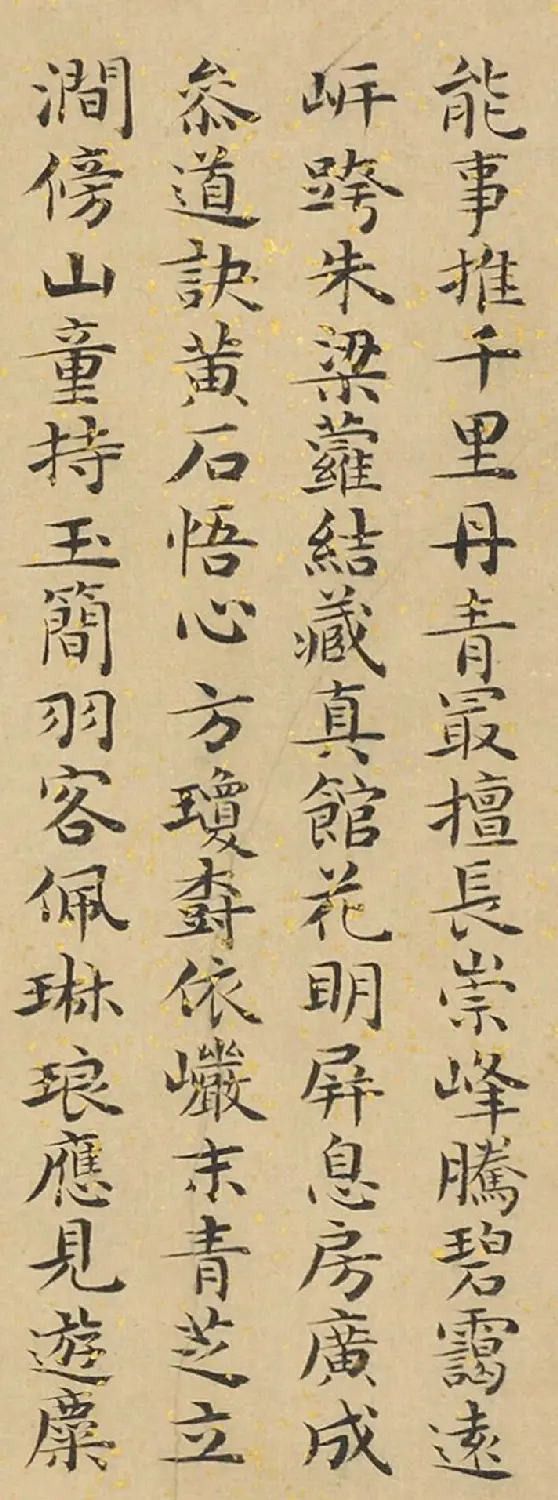 能事推千里丹青最擅長崇峰騰碧靄遠
岍跨朱梁蘿結藏真館花明屏息房廣成
叅道訣黄石悟心方瓊樹依巗末青芝立
澗傍山童持玉簡羽客佩琳琅應見遊麋